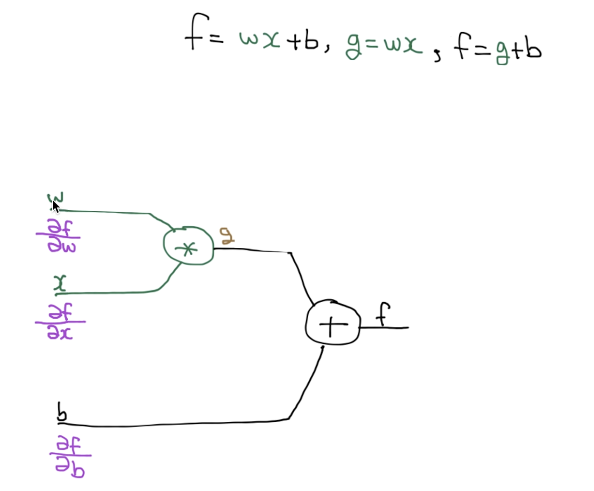 f= wx+b, g=wx, f=g+b
w
∂f
∂w
*
g
x
∂f
∂x
+
f
b
∂f
∂b